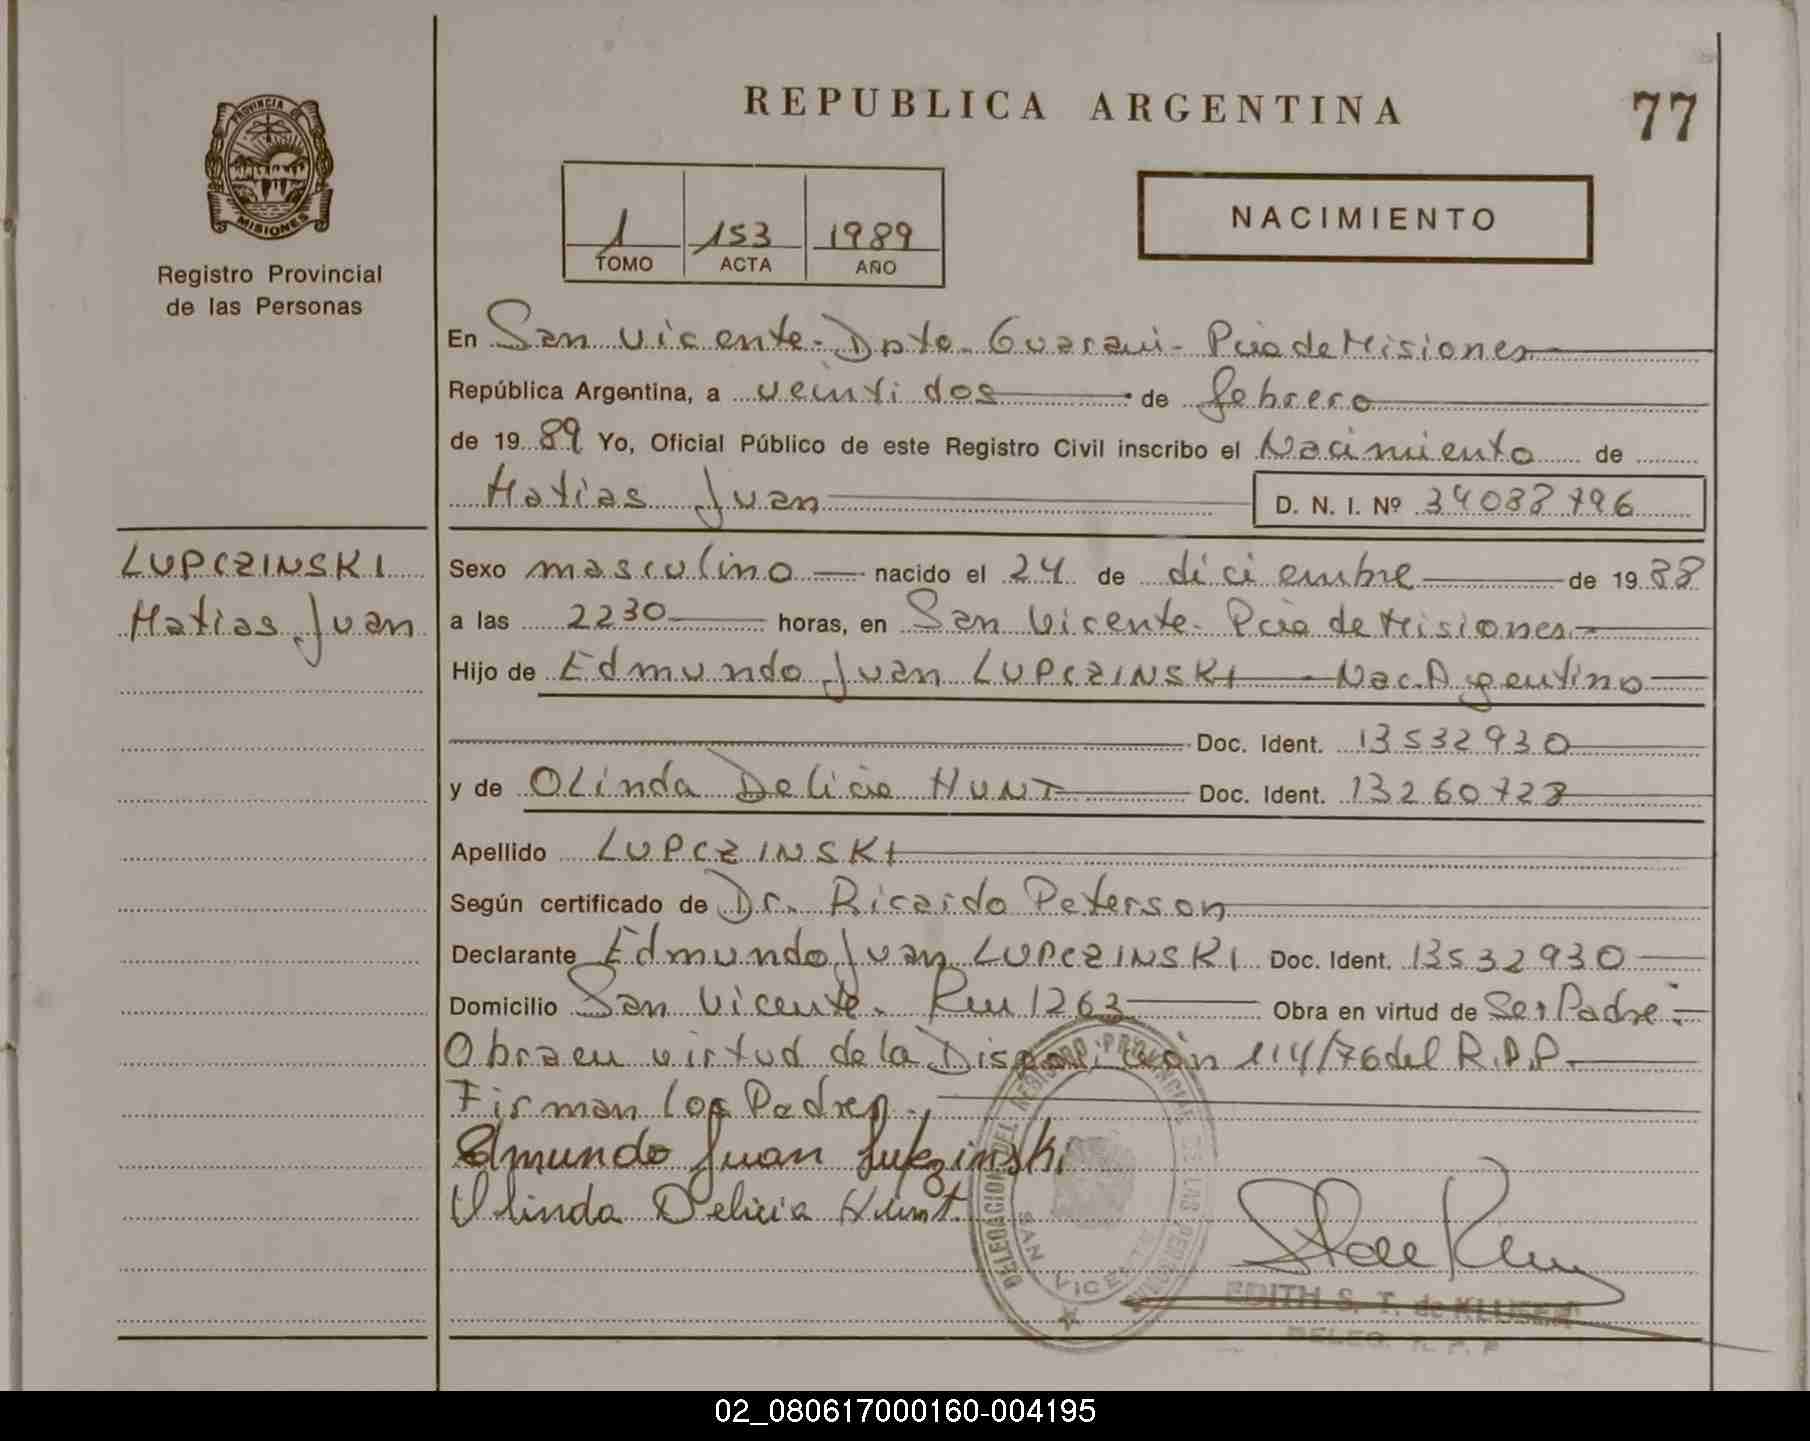 REPUBLICA ARGENTINA
77
PROVINCIA DE
MISIONES
Registro Provincial
de las Personas
1 153 1989
TOMO ACTA AÑO
NACIMIENTO
En San Vicente - Dpto. Guaraní - Pcia de Misiones
República Argentina, a veintidos de febrero
de 1989 Yo, Oficial Público de este Registro Civil inscribo el Nacimiento de
Matias Juan D. N. I. Nº 34088796
LUPCZINSKI
Matias Juan
Sexo masculino nacido el 24 de diciembre de 1988
a las 2230 horas, en San Vicente - Pcia de Misiones
Hijo de Edmundo Juan LUPCZINSKI - Nac. Argentino
Doc. Ident. 13532930
y de OLinda Delicia HUNT Doc. Ident. 13260728
Apellido LUPCZINSKI
Según certificado de Dr. Ricardo Peterson
Declarante Edmundo Juan LUPCZINSKI Doc. Ident. 13532930
Domicilio San Vicente. Km 1263 Obra en virtud de Ser Padre.-
Obra en virtud de la Disposición 114/76 del R.P.P.
Firman los Padres.,
Edmundo Juan Lupczinski
Olinda Delicia Hunt.
DELEGACION DEL REGISTRO PROVINCIAL DE LAS PERSONAS
SAN VICENTE
EDITH S. T. de KLUSEN
DELEG. R. P. P
02_080617000160-004195